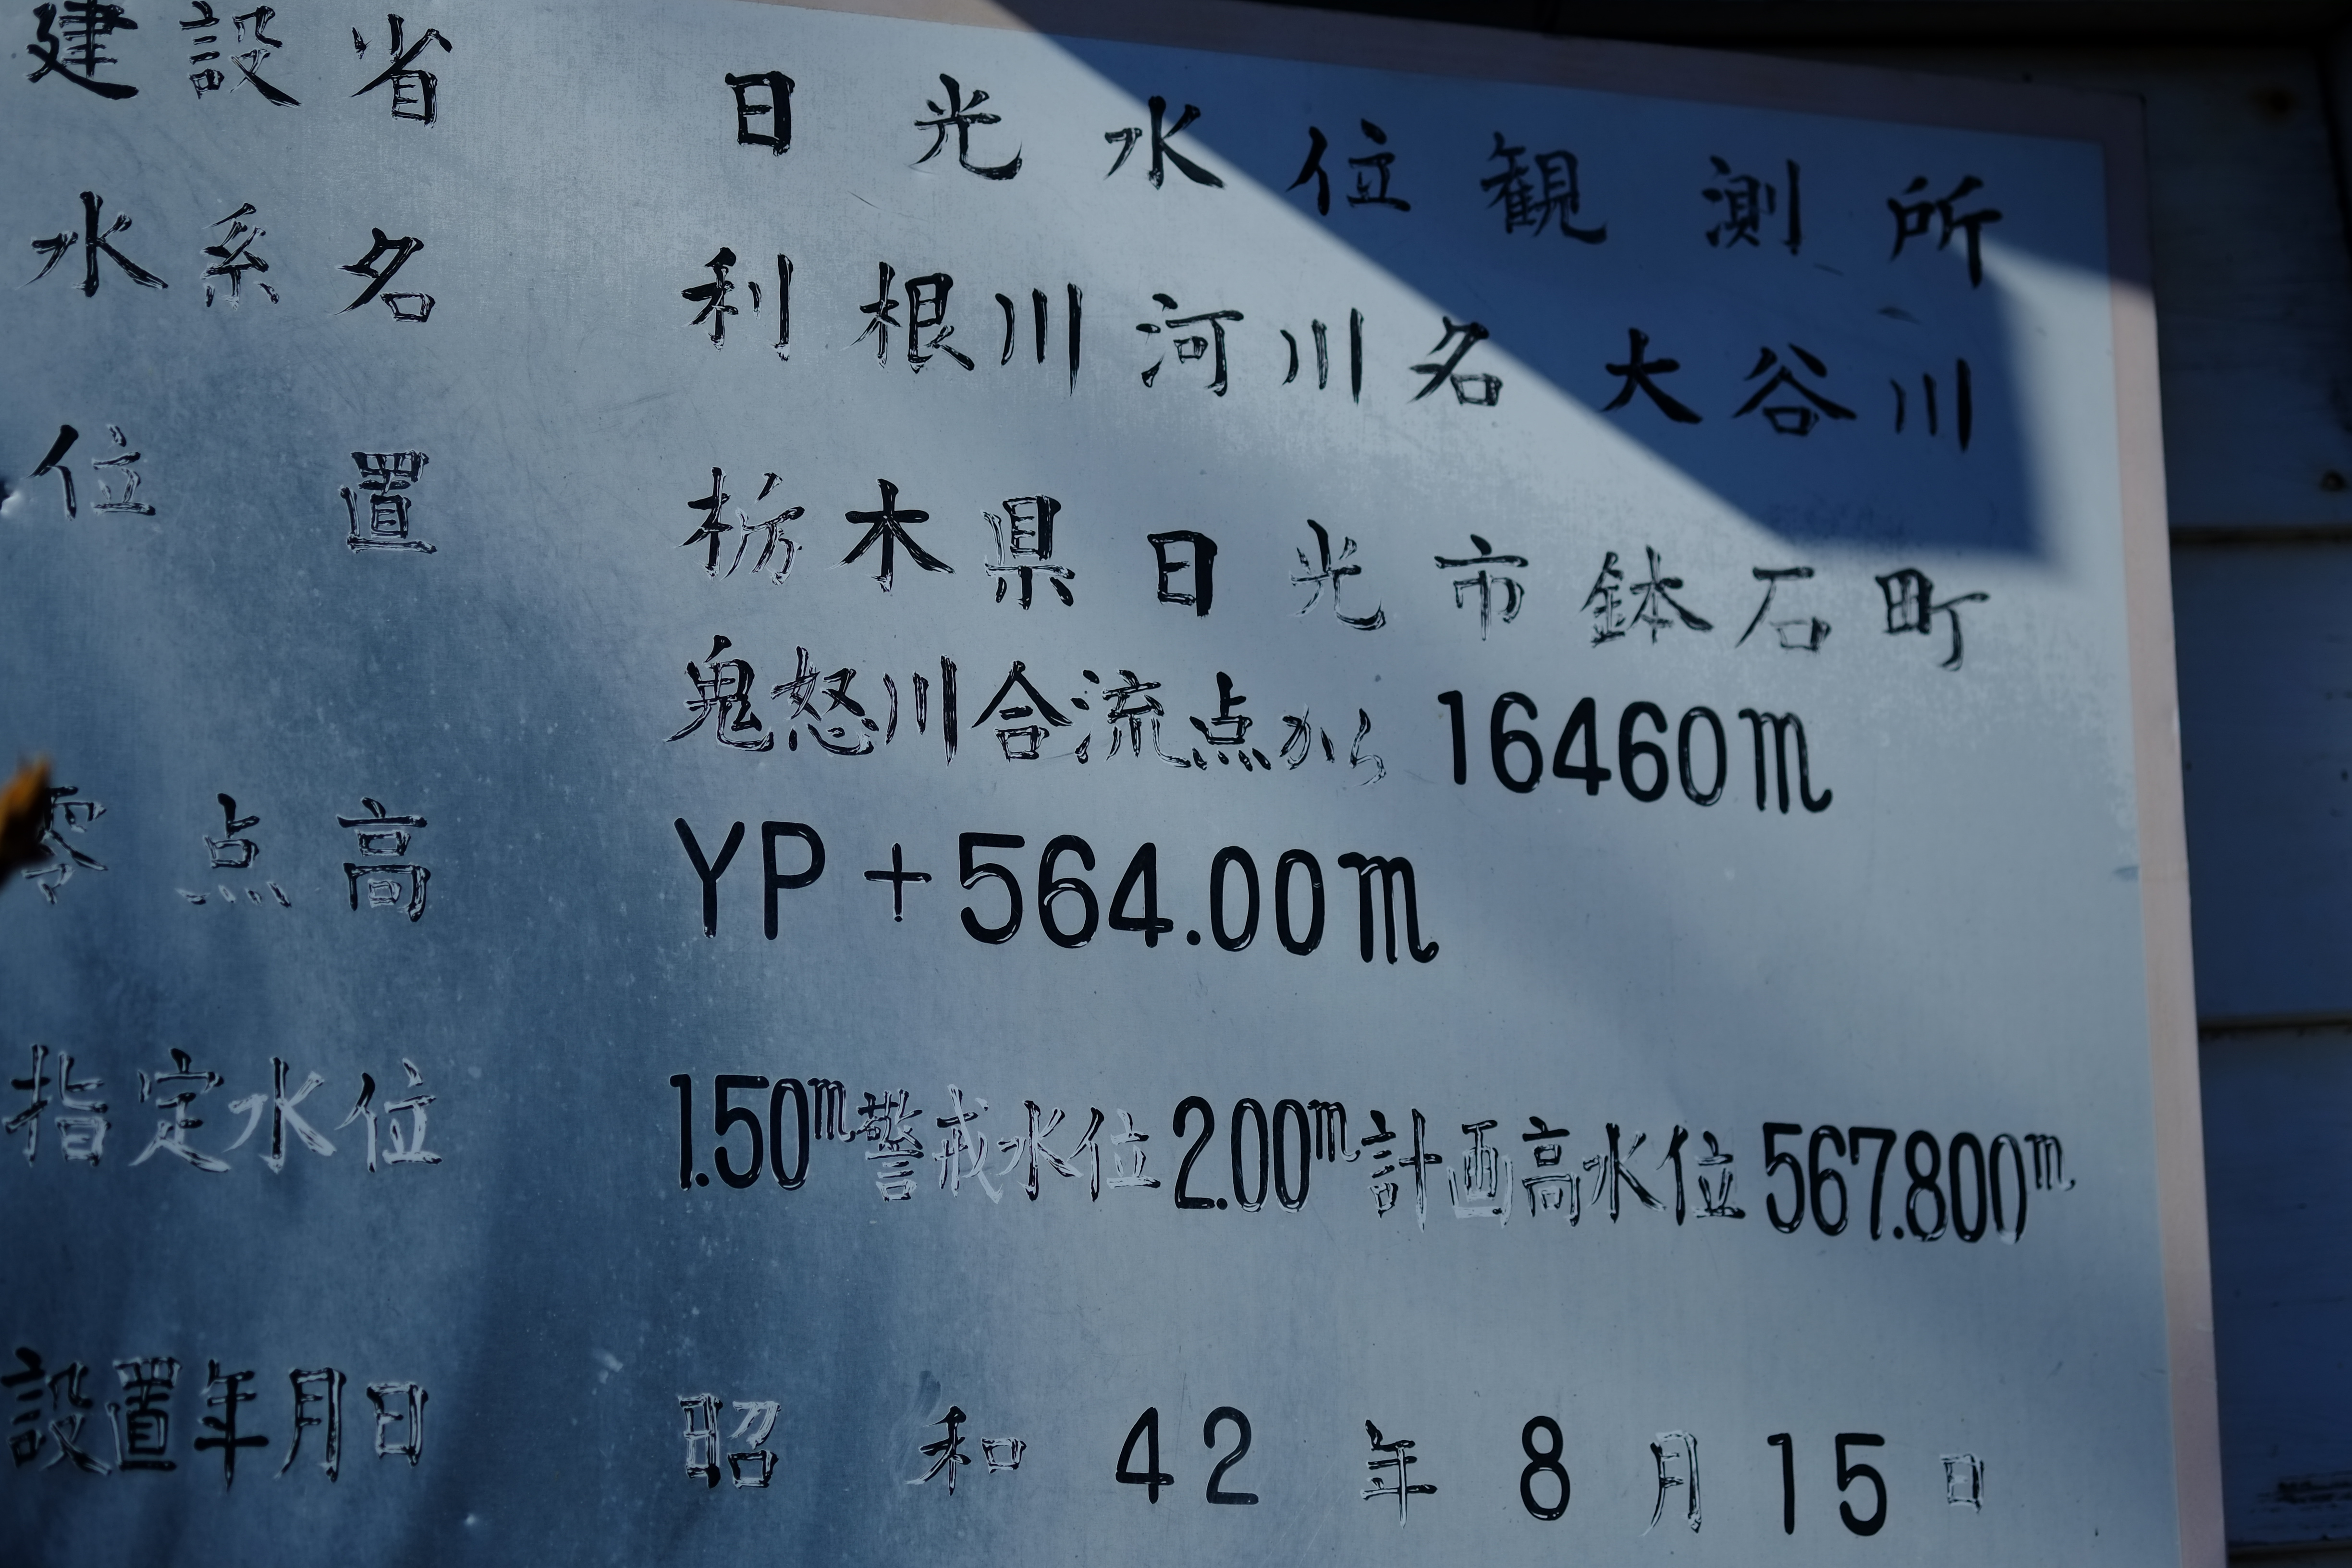 建設省 日光水位観測所
水系名 利根川河川名 大谷川
位置 栃木県日光市鉢石町
鬼怒川合流点から 16460m
零点高 YP+564.00m
指定水位 1.50m警戒水位2.00m計画高水位567.800m
設置年月日 昭和42年8月15日